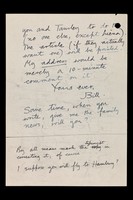 you and Tansley to do it
(no one else, except
The article (if they actually
want one) will be printed
My address would be
merely a 10-minute
comment on it.
Yours ever,
Bill
Some time, when you
write, give me the family
news, will you?
all means mark the
it, of course
I suppose you will fly to Hamburg?